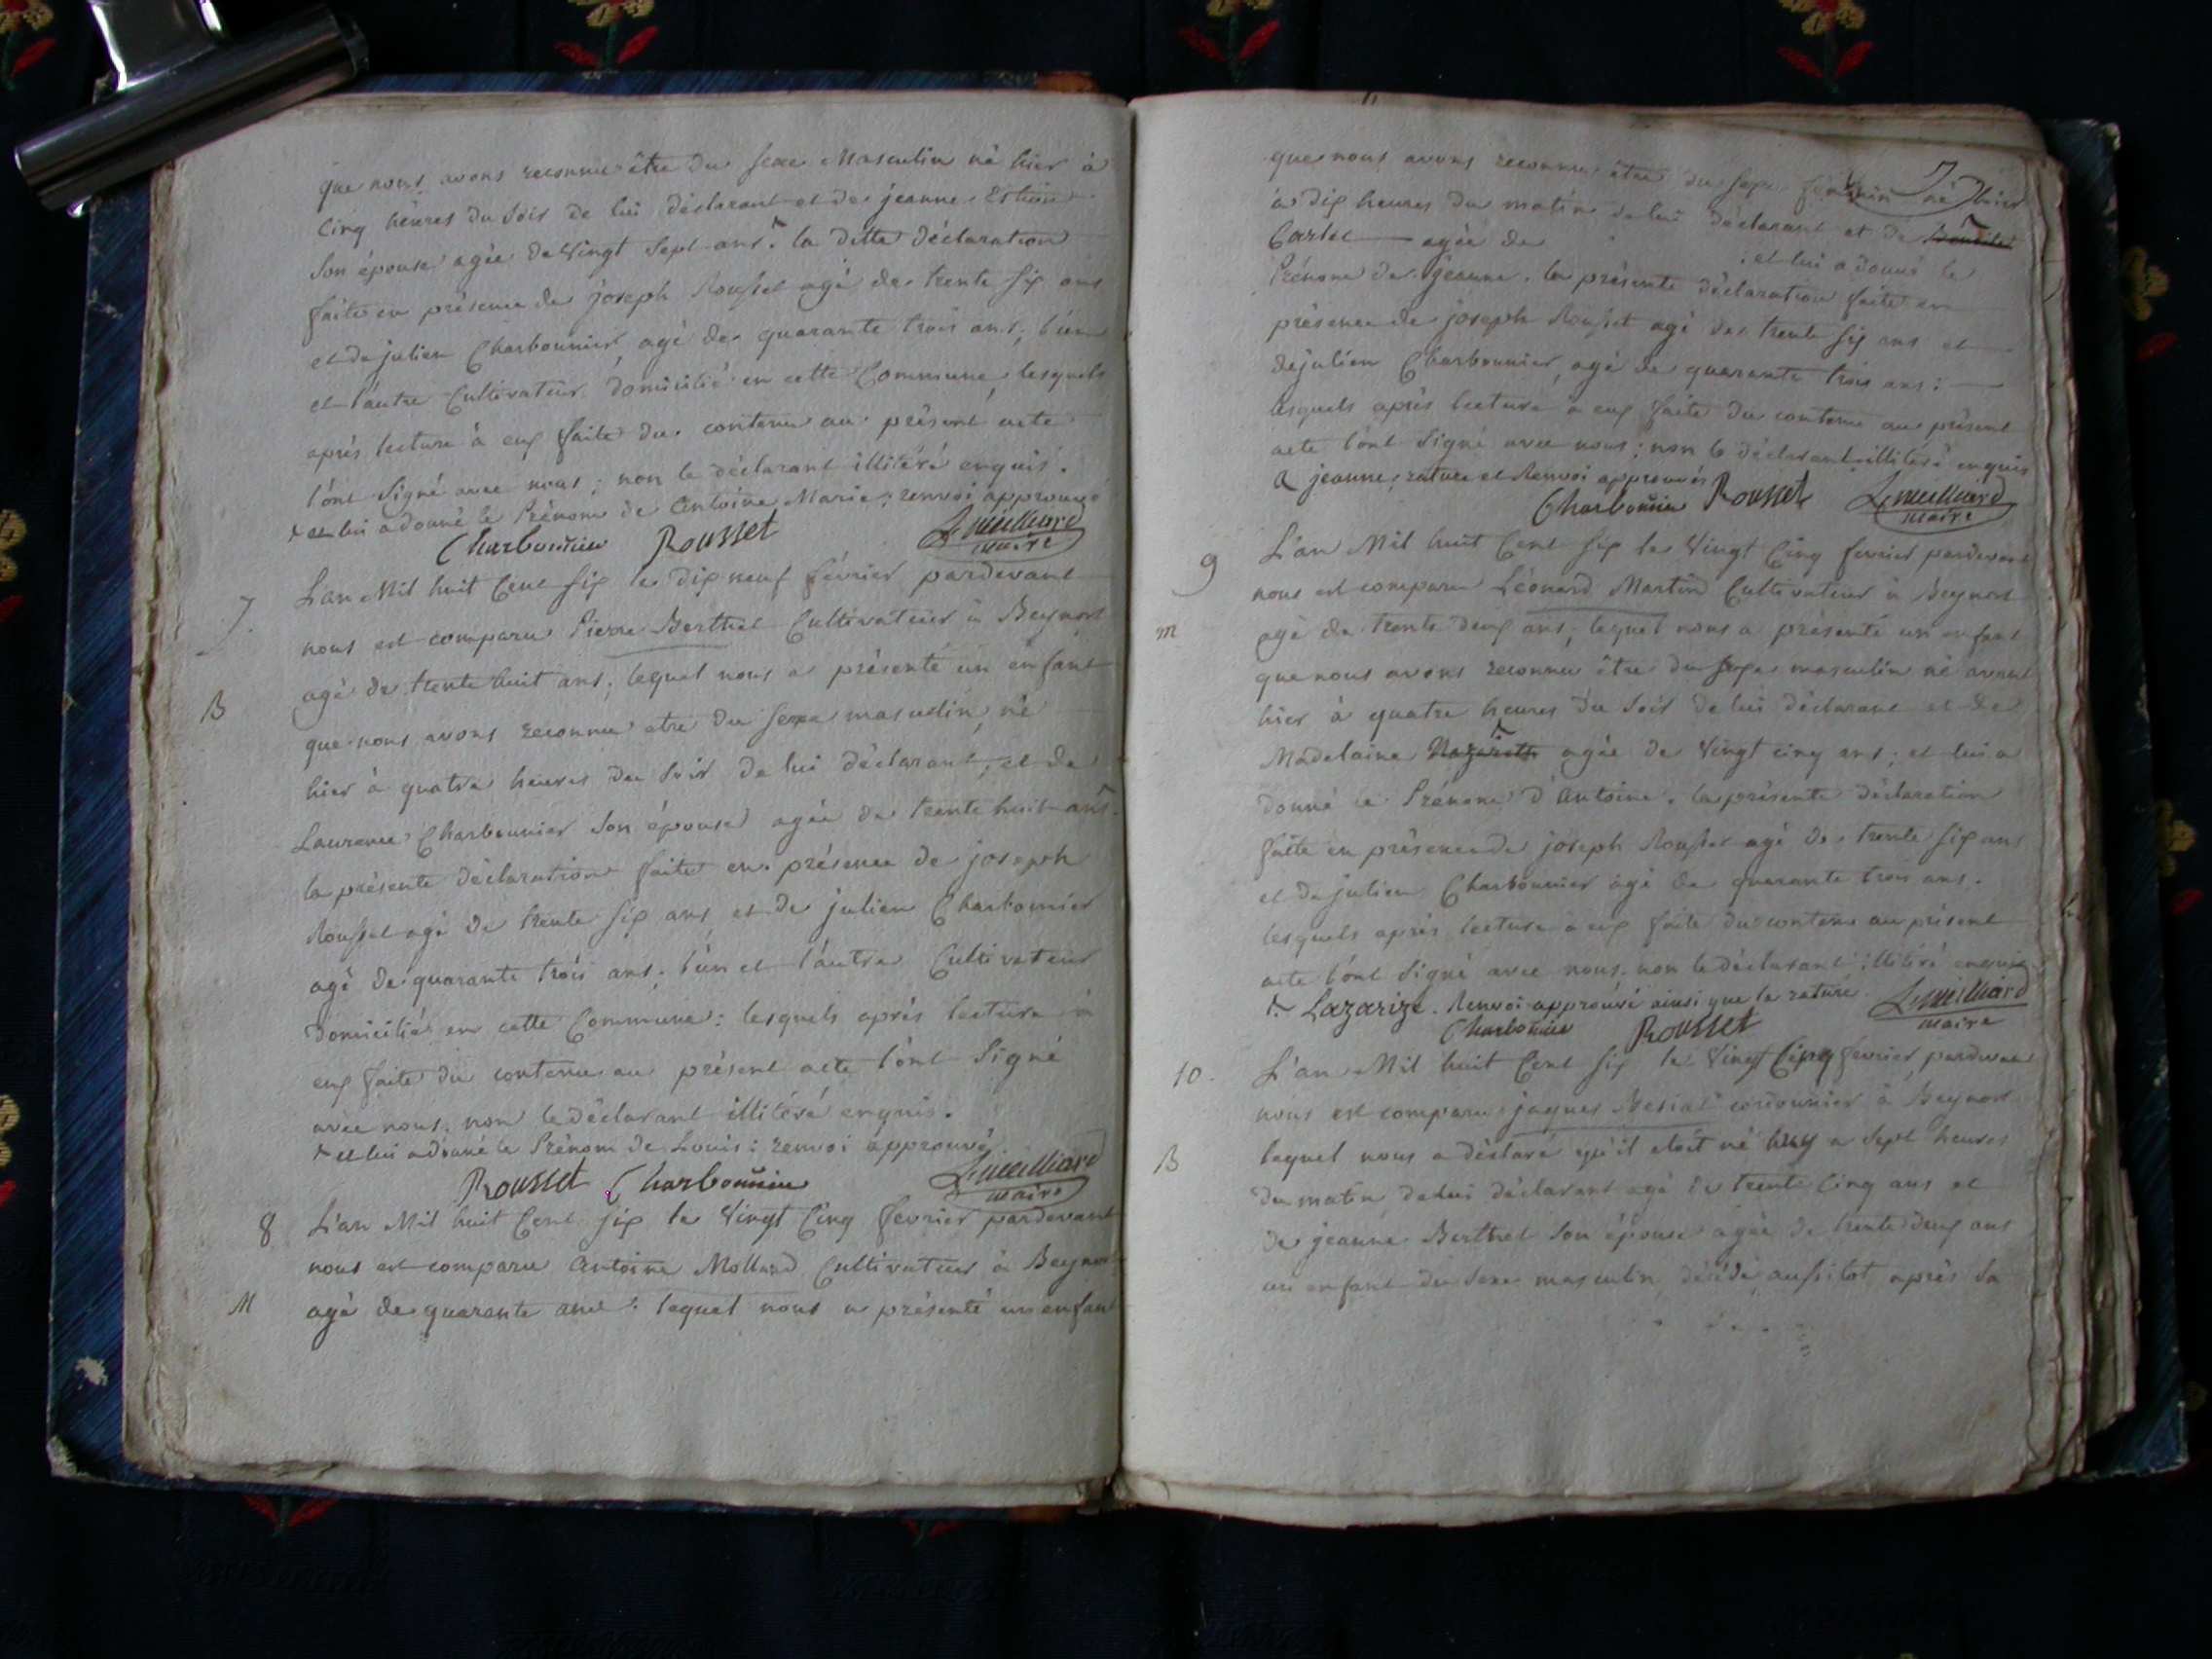 que nous avons reconnu être du sexe Masculin né hier à
Cinq heures du Soir de lui déclarant et de jeanne
Son épouse agée de Vingt Sept ans. la ditte déclaration
faite en présence de joseph Rousset agé de trente six ans
et de julien Charbonnier, agé de quarante trois ans, l'un
et l'autre Cultivateur domicilié en cette Commune, lesquels
après lecture à eux faite du contenu au présent acte
l'ont Signé avec nous; non le déclarant illitéré enquis.
+ et lui a donné le Prénom de Antoine Marie; renvoi approuvé
Charbonnier Rousset maire
7. L'an Mil huit Cent six le dix neuf février pardevant
nous est comparu Pierre Berthet Cultivateur à Beynost
B agé de trente huit ans; lequel nous a présenté un enfant
que nous avons reconnu etre du sexe masculin, né
hier à quatre heures du Soir de lui déclarant, et de
Laurence Charbonnier Son épouse agée de trente huit ans.
la présente déclaration faite en présence de joseph
Rousset agé de trente six ans et de julien Charbonnier
agé de quarante trois ans; l'un et l'autre Cultivateur
domicilié en cette Commune: lesquels après lecture à
eux faite du contenu au présent acte l'ont Signé
avec nous. non le déclarant illitéré enquis.
+ et lui a donné le Prénom de Louis: renvoi approuvé
Rousset Charbonnier maire
8 L'an Mil huit Cent six le Vingt Cinq fevrier pardevant
nous est comparu Antoine Molland Cultivateur à Beynost
M agé de quarante ans: lequel nous a présenté un enfant
7
que nous avons reconnu être du sexe né hier
à dix heures du matin de lui déclarant et de
agée de et lui a donné le
Prénom de jeanne. la présente déclaration faite en
présence de joseph Rousset agé de trente six ans et
de julien Charbonnier, agé de quarante trois ans:
lesquels après lecture à eux faite du contenu au présent
acte l'ont Signé avec nous; non le déclarant illiteré enquis
jeanne; rature et Renvoi approuvés
Charbonnier Rousset maire
9 L'an Mil huit Cent six le Vingt Cinq fevrier pardevant
nous est comparu Léonard Martin Cultivateur à Beynost
m agé de trente deux ans; lequel nous a présenté un enfant
que nous avons reconnu être du sexe masculin né avant
hier à quatre heures du Soir de lui déclarant et de
Madelaine Nazareth agée de Vingt cinq ans; et lui a
donné le Prénom d'Antoine. la présente déclaration
faite en présence de joseph Rousset agé de trente six ans
et de julien Charbonnier agé de quarante trois ans.
lesquels après lecture à eux faite du contenu au présent
acte l'ont Signé avec nous. non le déclarant illitéré enquis
+ Lazarize. Renvoi approuvé ainsi que la rature.
Charbonnier Rousset maire
10. L'an Mil huit Cent six le Vingt Cinq février pardevant
nous est comparu jaques à Beynost
B lequel nous a déclaré qu'il etoit né a Sept heures
du matin de lui déclarant agé de trente Cinq ans et
de jeanne Berthet Son épouse agée de trente deux ans
un enfant du sexe masculin, décédé aussitot après Sa